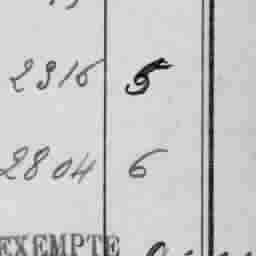 2316 5
2804 6
EXEMPTE